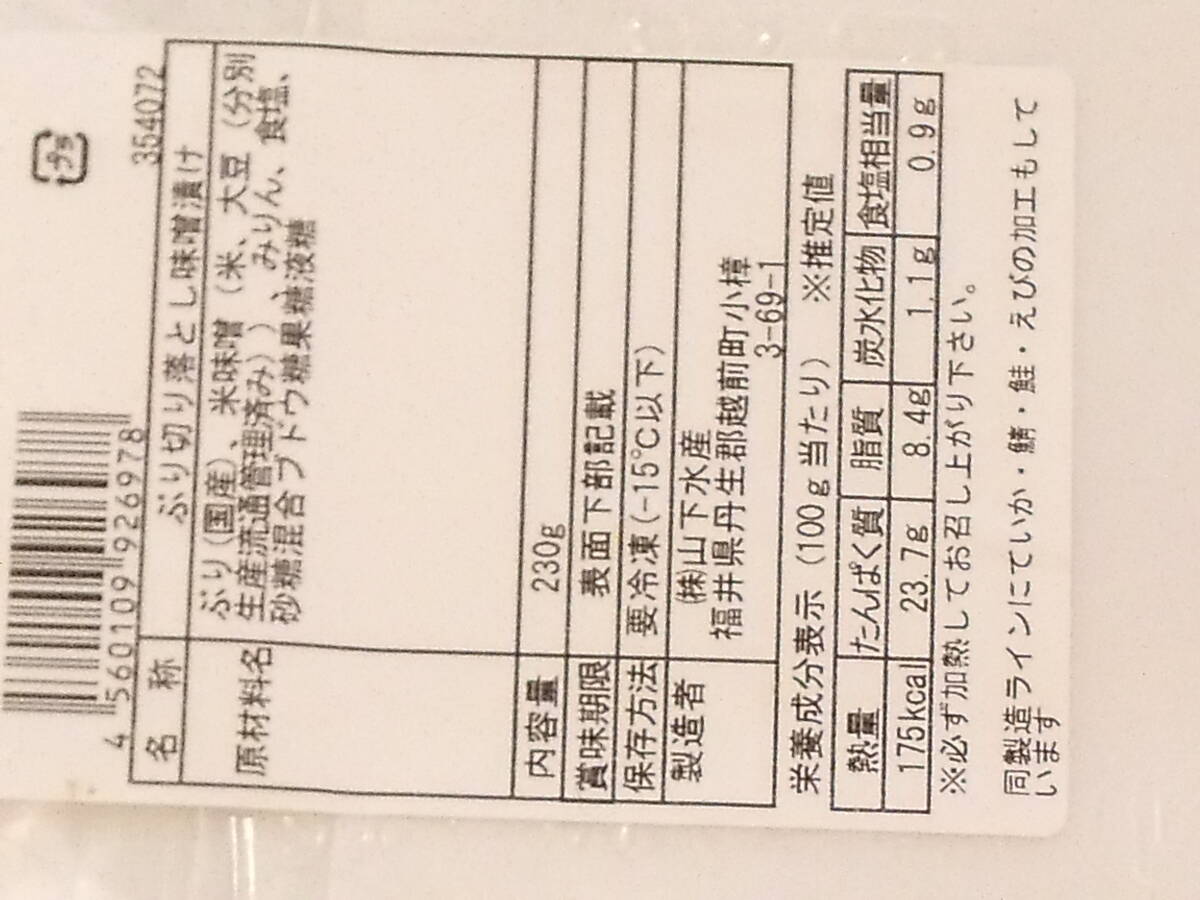 プラ
354072
4 560109 926978
名称 ぶり切り落とし味噌漬け
原材料名 ぶり(国産)、米味噌(米、大豆(分別
生産流通管理済み))、みりん、食塩、
砂糖混合ブドウ糖果糖液糖
内容量 230g
賞味期限 表面下部記載
保存方法 要冷凍(-15℃以下)
製造者 ㈱山下水産
福井県丹生郡越前町小樟
3-69-1
栄養成分表示(100g当たり) ※推定値
熱量 たんぱく質 脂質 炭水化物 食塩相当量
175kcal 23.7g 8.4g 1.1g 0.9g
※必ず加熱してお召し上がり下さい。
同製造ラインにていか・鯖・鮭・えびの加工もして
います